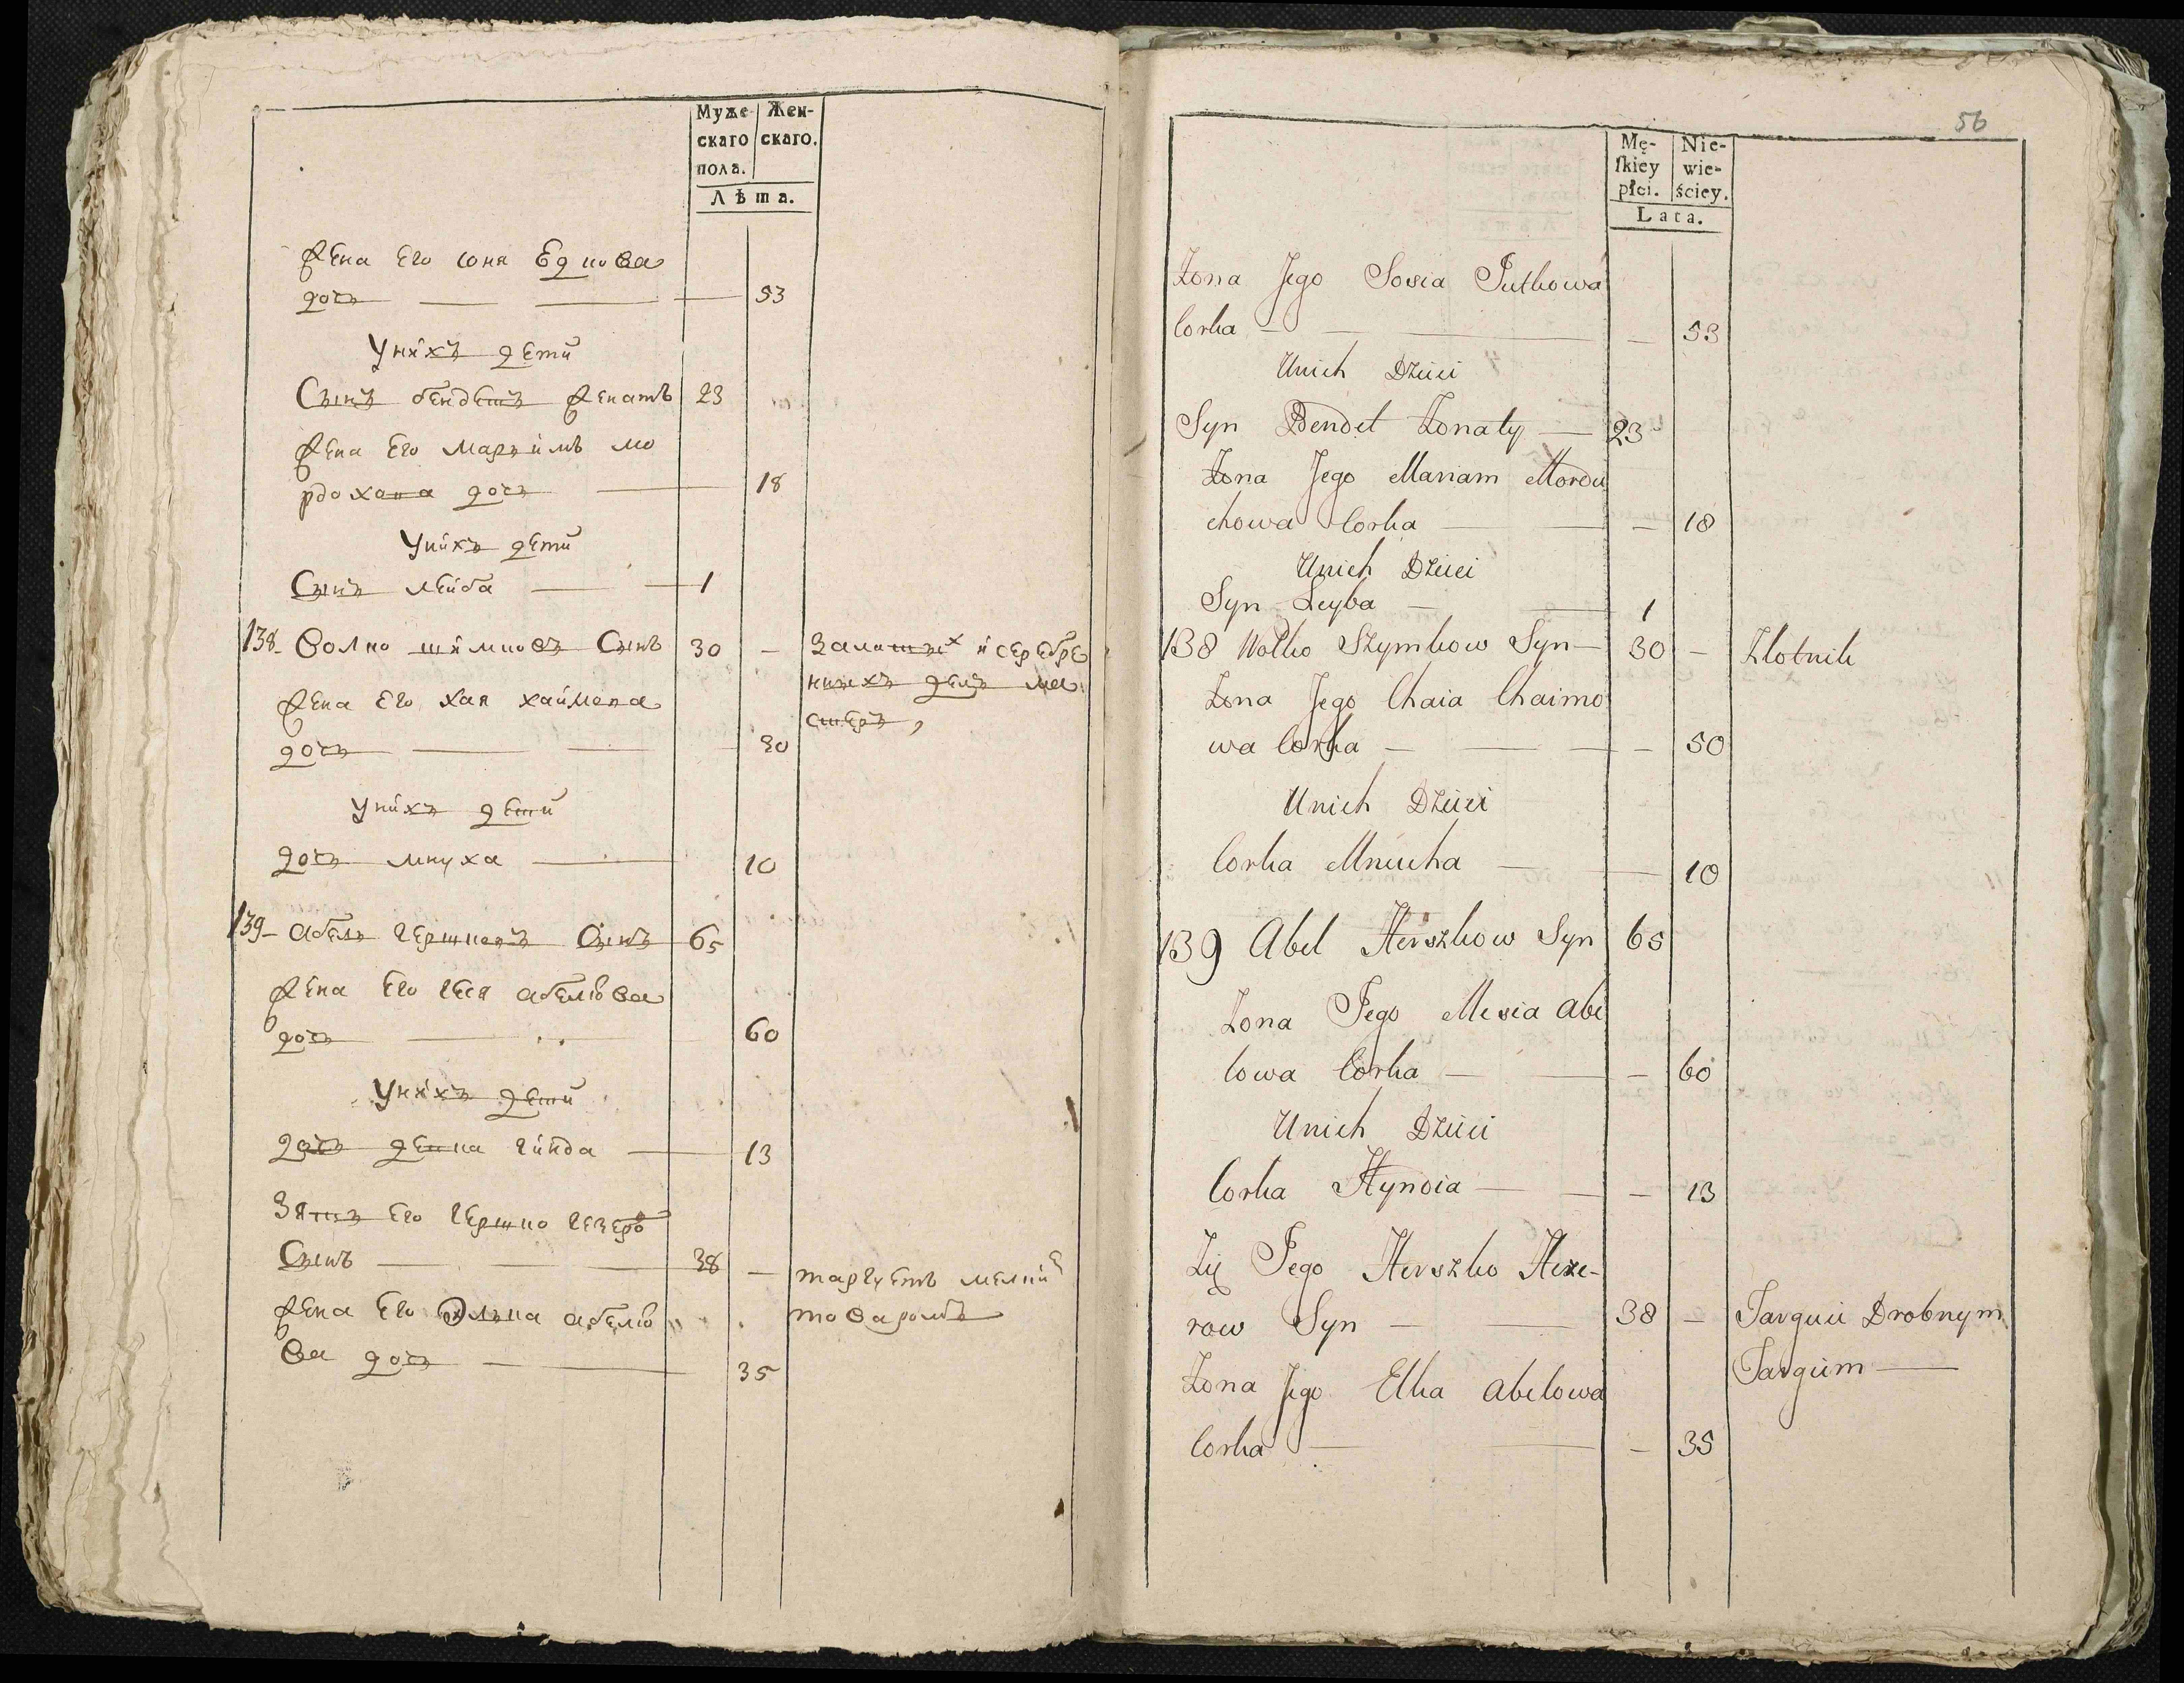 Муже-
скаго
пола.
Жен-
скаго.
Лѣта.
Жена Его
дочь — 53
Унихъ дети
Сынъ бендетъ Женатъ 23
Жена Его Марьимъ мо
рдохова дочь — 18
Унихъ дети
Сынъ лейба — 1
138 Волко шимковъ Сынъ 30 — Залотыхъ и серебре
нныхъ делъ ма
стеръ,
Жена Его Хая хаймова
дочь — 30
Унихъ дети
дочь мнуха — 10
139 Абель гершковъ Сынъ 65
Жена Его абелева
дочь — 60
Унихъ дети
дочь девка гинда — 13
Зять Его гершко гезеро
Сынъ — 38 — таргуетъ мелкий
товаромъ
Жена Его Элька абелю
ва дочь — 35
56
Mę-
ſkiey
płci.
Nie-
wie-
ściey.
Lata.
Zona Jego Sosia Jutkowa
Corka — 53
Unich Dzieci
Syn Bendet Zonaty — 23
Zona Jego Mariam Mordu
chowa Corka — 18
Unich Dzieci
Syn Leyba — 1
138 Wolko Szymkow Syn — 30 — Zlotnik
Zona Jego Chaia Chaimo
wa Corka — 50
Unich Dzieci
Corka Mnucha — 10
139 Abel Herszkow Syn 65
Zona Jego Mesia Abe
lowa Corka — 60
Unich Dzieci
Corka Hynda — 13
Zię Jego Herszko Heze-
row Syn — 38 — Targuie Drobnym
Targiem —
Zona Jego Elka Abelowa
Corka — 35